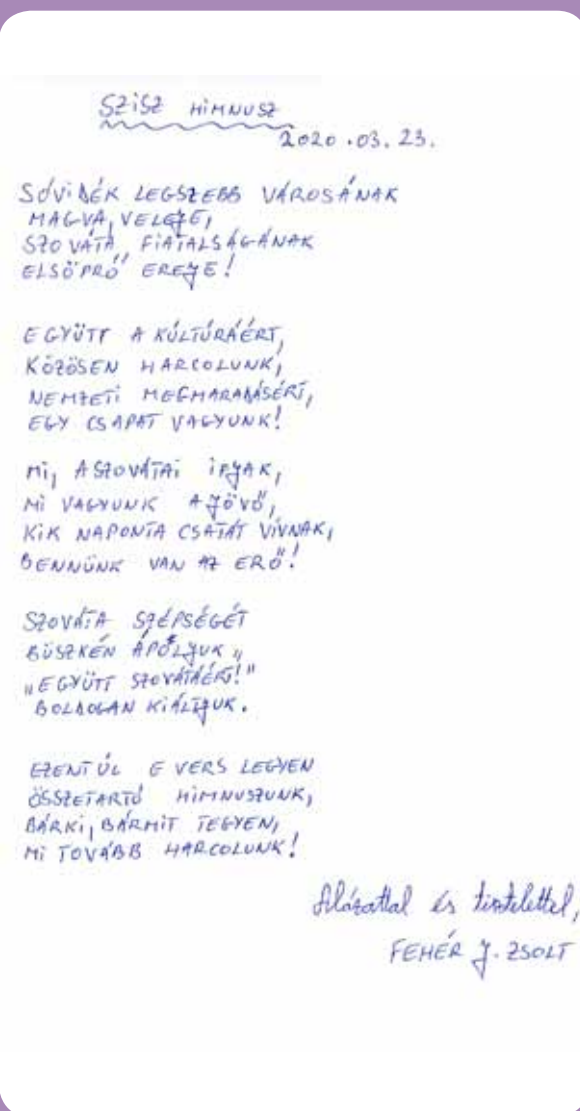 SZISZ HIMNUSZ
2020.03.23.
SÓVIDÉK LEGSZEBB VÁROSÁNAK
MAGVA, VELEJE,
SZOVÁTA FIATALSÁGÁNAK
ELSÖPRŐ EREJE!
EGYÜTT A KÚLTÚRÁÉRT,
KÖZÖSEN HARCOLUNK,
NEMZETI MEGMARADÁSÉRT,
EGY CSAPAT VAGYUNK!
MI, A SZOVÁTAI IFJAK,
MI VAGYUNK A JÖVŐ,
KIK NAPONTA CSATÁT VÍVNAK,
BENNÜNK VAN AZ ERŐ!
SZOVÁTA SZÉPSÉGÉT
BÜSZKÉN ÁPOLJUK,,
„EGYÜTT SZOVÁTÁÉRT!"
BOLDOGAN KIÁLTJUK.
EZENTÚL E VERS LEGYEN
ÖSSZETARTÓ HIMNUSZUNK,
BÁRKI, BÁRMIT TEGYEN,
MI TOVÁBB HARCOLUNK!
Alázattal és tisztelettel,
FEHÉR J. ZSOLT